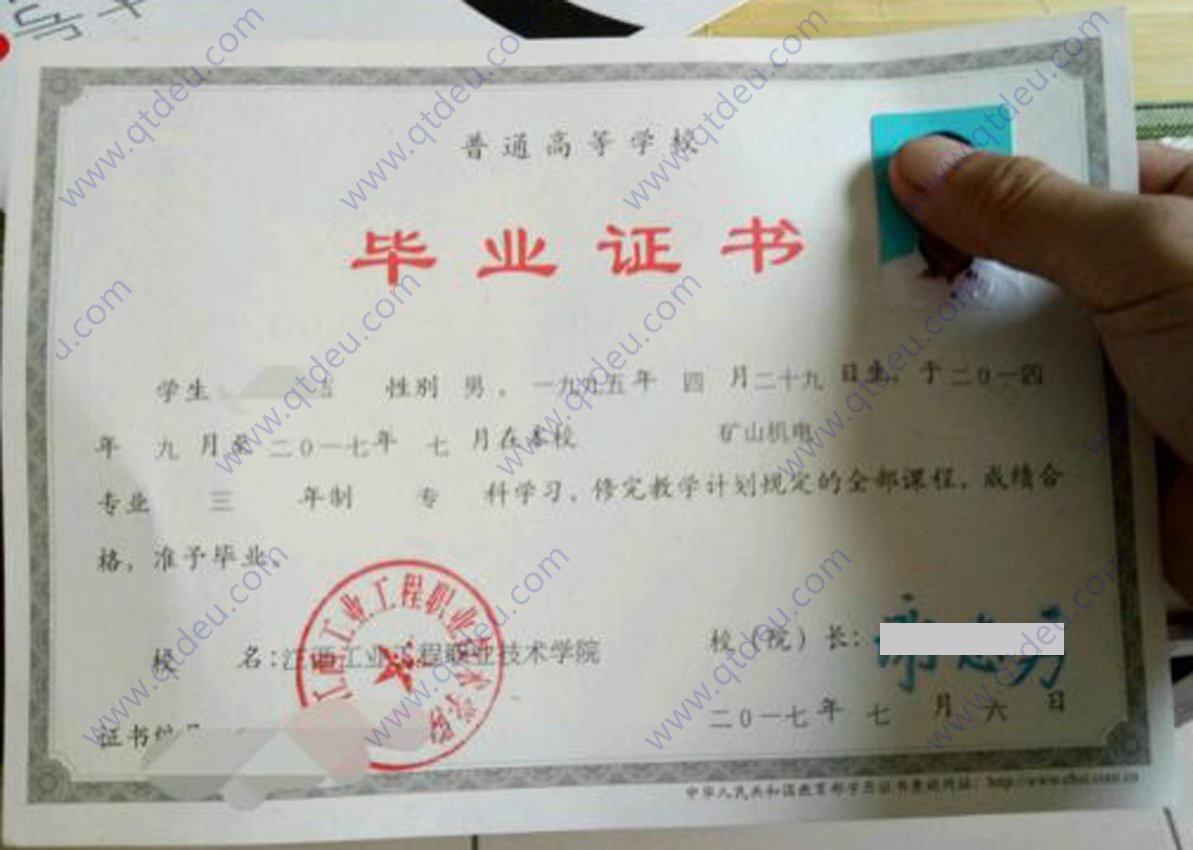 普通高等学校
毕业证书
学生 吉 性别 男，一九九五年 四 月二十九日生，于二〇一四
年 九 月至二〇一七年 七 月在本校 矿山机电
专业 三 年制 专 科学习，修完教学计划规定的全部课程，成绩合
格，准予毕业。
校 名：江西工业工程职业技术学院
校（院）长：
江西工业工程职业技术学院
二〇一七年 七 月 六 日
证书编号
中华人民共和国教育部学历证书查询网址：http://www.chsi.com.cn
www.qtdeu.com
www.qtdeu.com
www.qtdeu.com
www.qtdeu.com
u.com
www.qtdeu.com
www.qtdeu.com
www.qtdeu.com
www.qtdeu.com
www.qtdeu.com
www.qtdeu.com
www.qtdeu.com